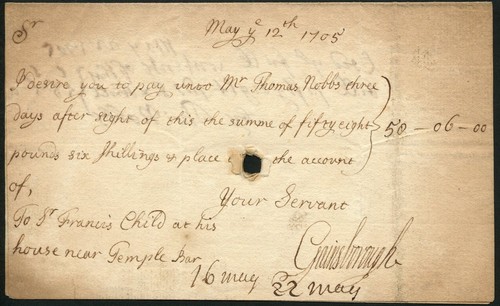 Sr
May ye 12th 1705
I desire you to pay unto Mr Thomas Nobbs three
days after sight of this the summe of fifty eight
pounds six shillings & place the account
58 - 06 - 00
of,
Your Servant
To Sr Francis Child at his
house near Temple Bar
Gainsborough
16 may 22 may